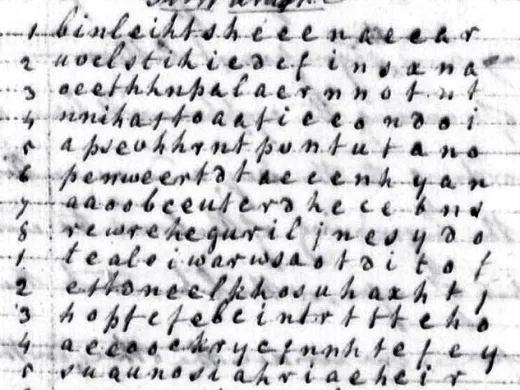 1 binleihtsheeenaeear
2 uvelstihiedefinsxna
3 oeethhnpalaernnotnt
4 nnihattoaaticeondoi
5 apsevhhrntpvntutano
6 penweertdtaeeenhyan
7 aaoobeeuterdhecebns
8 rewreheguriljnesydo
1 tealoiwarwsaotditof
2 ettdneelphosuhaxhtj
3 hoptefebeintrttteho
4 aeeooekrycfnnhtefey
5 suaunosiahriaeheir